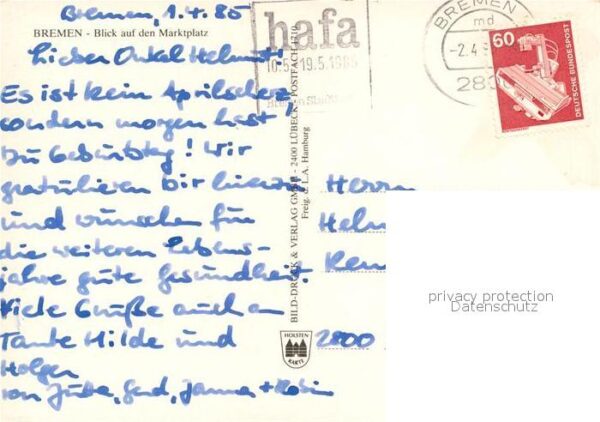 Bremen, 1.4.85
BREMEN - Blick auf den Marktplatz
Lieber Onkel Helmut!
Es ist kein Aprilscherz
sondern morgen hast
Du Geburtstag! Wir
gratulieren Dir
und wünschen für
die weiteren Lebens-
jahre gute Gesundheit.
Viele Grüße auch an
Tante Hilde und
Holger
von Jutta, Gerd, Janna + Robin
BILD-DRUCK & VERLAG GMBH - 2400 LÜBECK - POSTFACH 1710
Freig. d. L.A. Hamburg
HOLSTEN
KARTE
hafa
10.5 19.5.1985
BREMEN
md
-2.4.
28
60
DEUTSCHE BUNDESPOST
Herrn
Helm
2800
privacy protection
Datenschutz